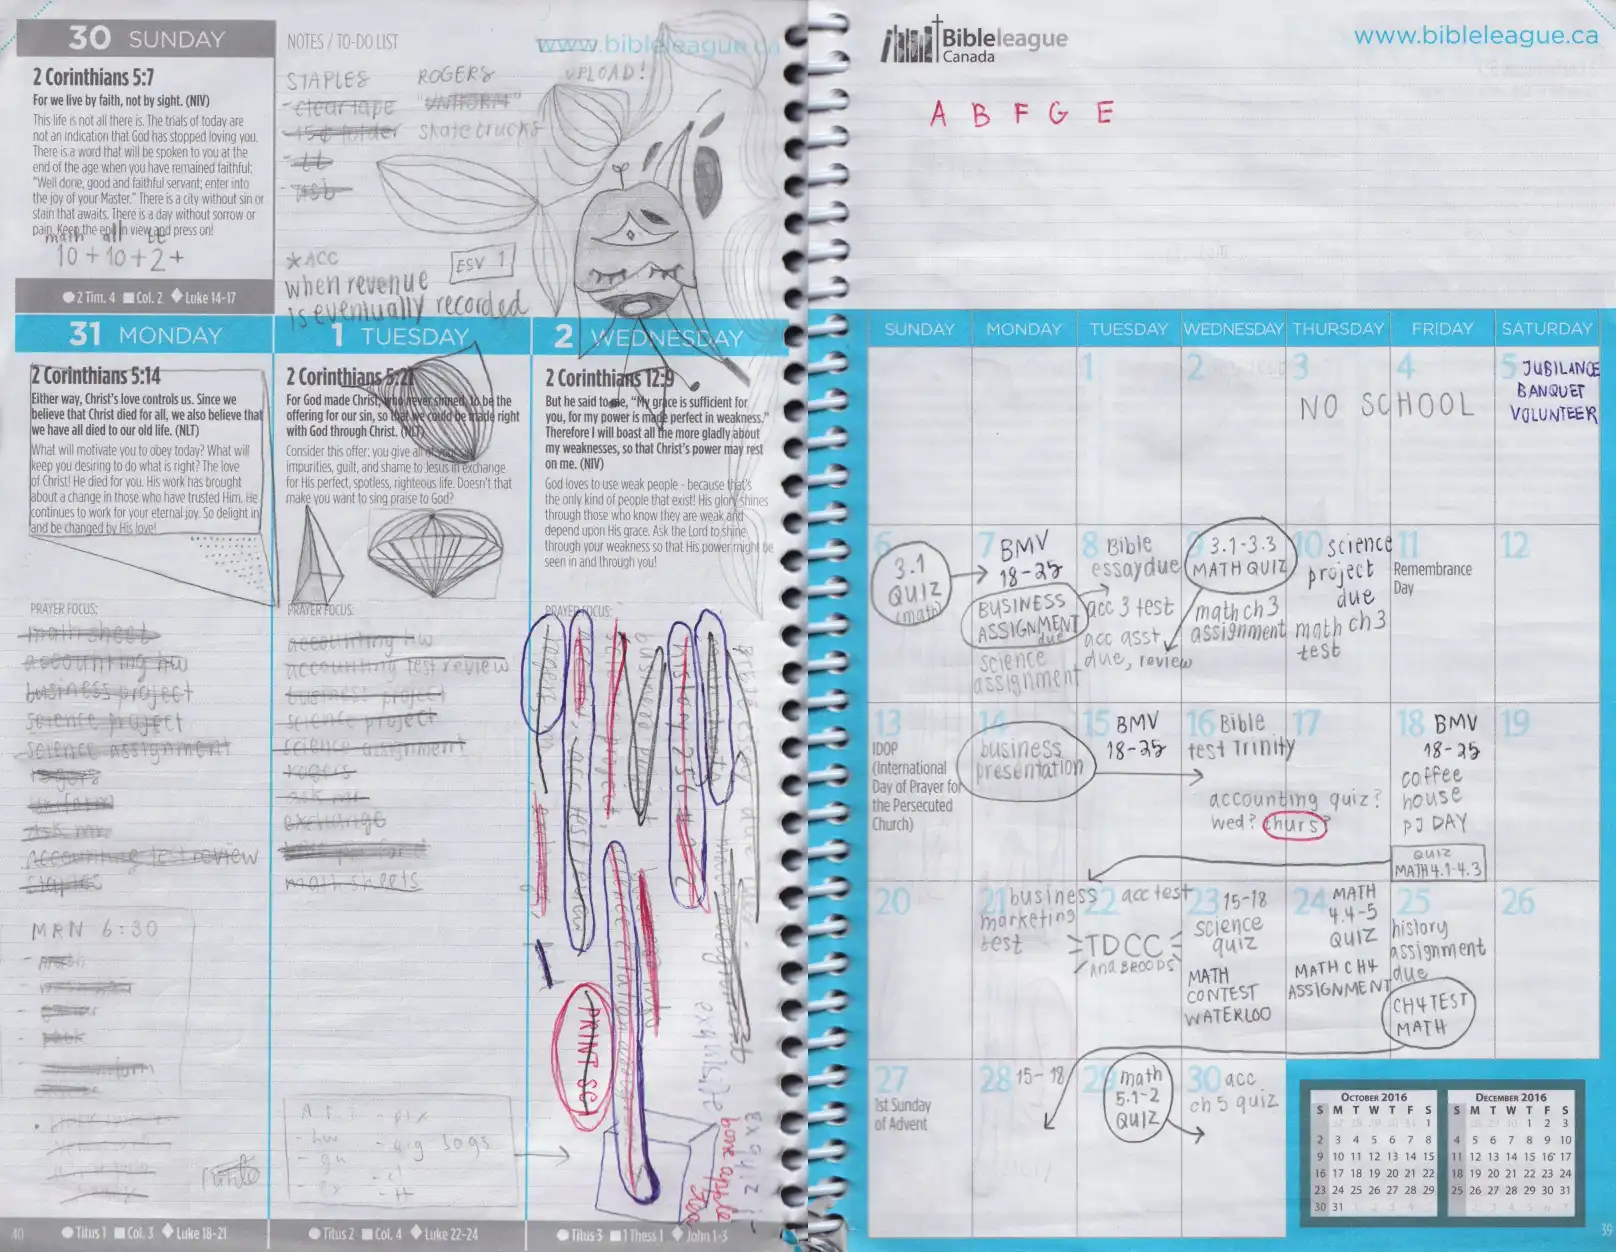 30 SUNDAY
2 Corinthians 5:7
For we live by faith, not by sight. (NIV)
This life is not all there is. The trials of today are
not an indication that God has stopped loving you.
There is a word that will be spoken to you at the
end of the age when you have remained faithful:
"Well done, good and faithful servant; enter into
the joy of your Master." There is a city without sin or
stain that awaits. There is a day without sorrow or
pain. Keep the end in view and press on!
math all tt
10 + 10 + 2 +
2 Tim. 4 Col. 2 Luke 14-17
NOTES / TO-DO LIST
www.bibleleague.ca
STAPLES
- clear tape
- 15¢ folder
- tt
ROGERS
"UNIFORM"
skate trucks
UPLOAD!
*ACC
when revenue
is eventually recorded
ESV 1
31 MONDAY
2 Corinthians 5:14
Either way, Christ's love controls us. Since we
believe that Christ died for all, we also believe that
we have all died to our old life. (NLT)
What will motivate you to obey today? What will
keep you desiring to do what is right? The love
of Christ! He died for you. His work has brought
about a change in those who have trusted Him. He
continues to work for your eternal joy. So delight in
and be changed by His love!
PRAYER FOCUS:
math sheet
accounting hw
business project
science project
science assignment
rogers
uniform
ask mr.
accounting test review
staples
MRN 6:30
Titus 1 Col. 3 Luke 18-21
40
1 TUESDAY
2 Corinthians 5:21
For God made Christ, who never sinned, to be the
offering for our sin, so that we could be made right
with God through Christ. (NLT)
Consider this offer: you give all of your
impurities, guilt, and shame to Jesus in exchange
for His perfect, spotless, righteous life. Doesn't that
make you want to sing praise to God?
PRAYER FOCUS:
accounting hw
accounting test review
business project
science project
science assignment
rogers
ask mr.
exchange
math sheets
Titus 2 Col. 4 Luke 22-24
2 WEDNESDAY
2 Corinthians 12:9
But he said to me, "My grace is sufficient for
you, for my power is made perfect in weakness."
Therefore I will boast all the more gladly about
my weaknesses, so that Christ's power may rest
on me. (NIV)
God loves to use weak people - because that's
the only kind of people that exist! His glory shines
through those who know they are weak and
depend upon His grace. Ask the Lord to shine
through your weakness so that His power might be
seen in and through you!
PRAYER FOCUS:
rogers
acc test review
history 256 #2
PRINT SCI
Titus 3 1 Thess 1 John 1-3
Bibleleague
Canada
www.bibleleague.ca
A B F G E
SUNDAY MONDAY TUESDAY WEDNESDAY THURSDAY FRIDAY SATURDAY
1
2
3
4
NO SCHOOL
5 JUBILANCE
BANQUET
VOLUNTEER
6
3.1
QUIZ
(math)
7 BMV
18-25
BUSINESS
ASSIGNMENT
due
science
assignment
8 Bible
essay due
acc 3 test
acc asst.
due, review
9
3.1-3.3
MATH QUIZ
math ch 3
assignment
10 science
project
due
math ch 3
test
11
Remembrance
Day
12
13
IDOP
(International
Day of Prayer for
the Persecuted
Church)
14
business
presentation
15 BMV
18-25
16 Bible
test Trinity
accounting quiz?
wed? thurs?
17
18 BMV
18-25
coffee
house
PJ DAY
QUIZ
MATH 4.1-4.3
19
20
21 business
marketing
test
22 acc test
TDCC
AND BROODS
23 15-18
science
quiz
MATH
CONTEST
WATERLOO
24 MATH
4.4-5
QUIZ
MATH CH4
ASSIGNMENT
25
history
assignment
due
CH4 TEST
MATH
26
27
1st Sunday
of Advent
28 15-18
29
math
5.1-2
QUIZ
30 acc
ch 5 quiz
OCTOBER 2016
S M T W T F S
1
2 3 4 5 6 7 8
9 10 11 12 13 14 15
16 17 18 19 20 21 22
23 24 25 26 27 28 29
30 31
DECEMBER 2016
S M T W T F S
1 2 3
4 5 6 7 8 9 10
11 12 13 14 15 16 17
18 19 20 21 22 23 24
25 26 27 28 29 30 31
39